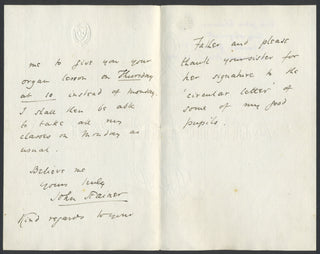 me to give you your
organ lesson on Thursday
at 10 instead of Monday.
I shall then be able
to take all my
classes on Monday as
usual.
Believe me
yours truly
John Farmer
Kind regards to your
Father and please
thank your sister for
her signature to the
'circular letter' of
some of my good
pupils.